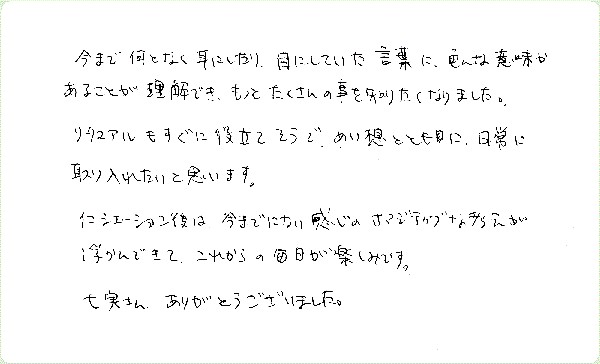 今まで何となく耳にしたり、目にしていた言葉に、色んな意味が
あることが理解でき、もっとたくさんの事を知りたくなりました。
リチュアルもすぐに役立てそうで、めい想とともに、日常に
取り入れたいと思います。
イニシエーション後は、今までにない感じのポジティブな考えが
浮かんできて、これからの毎日が楽しみです。
七実さん、ありがとうございました。